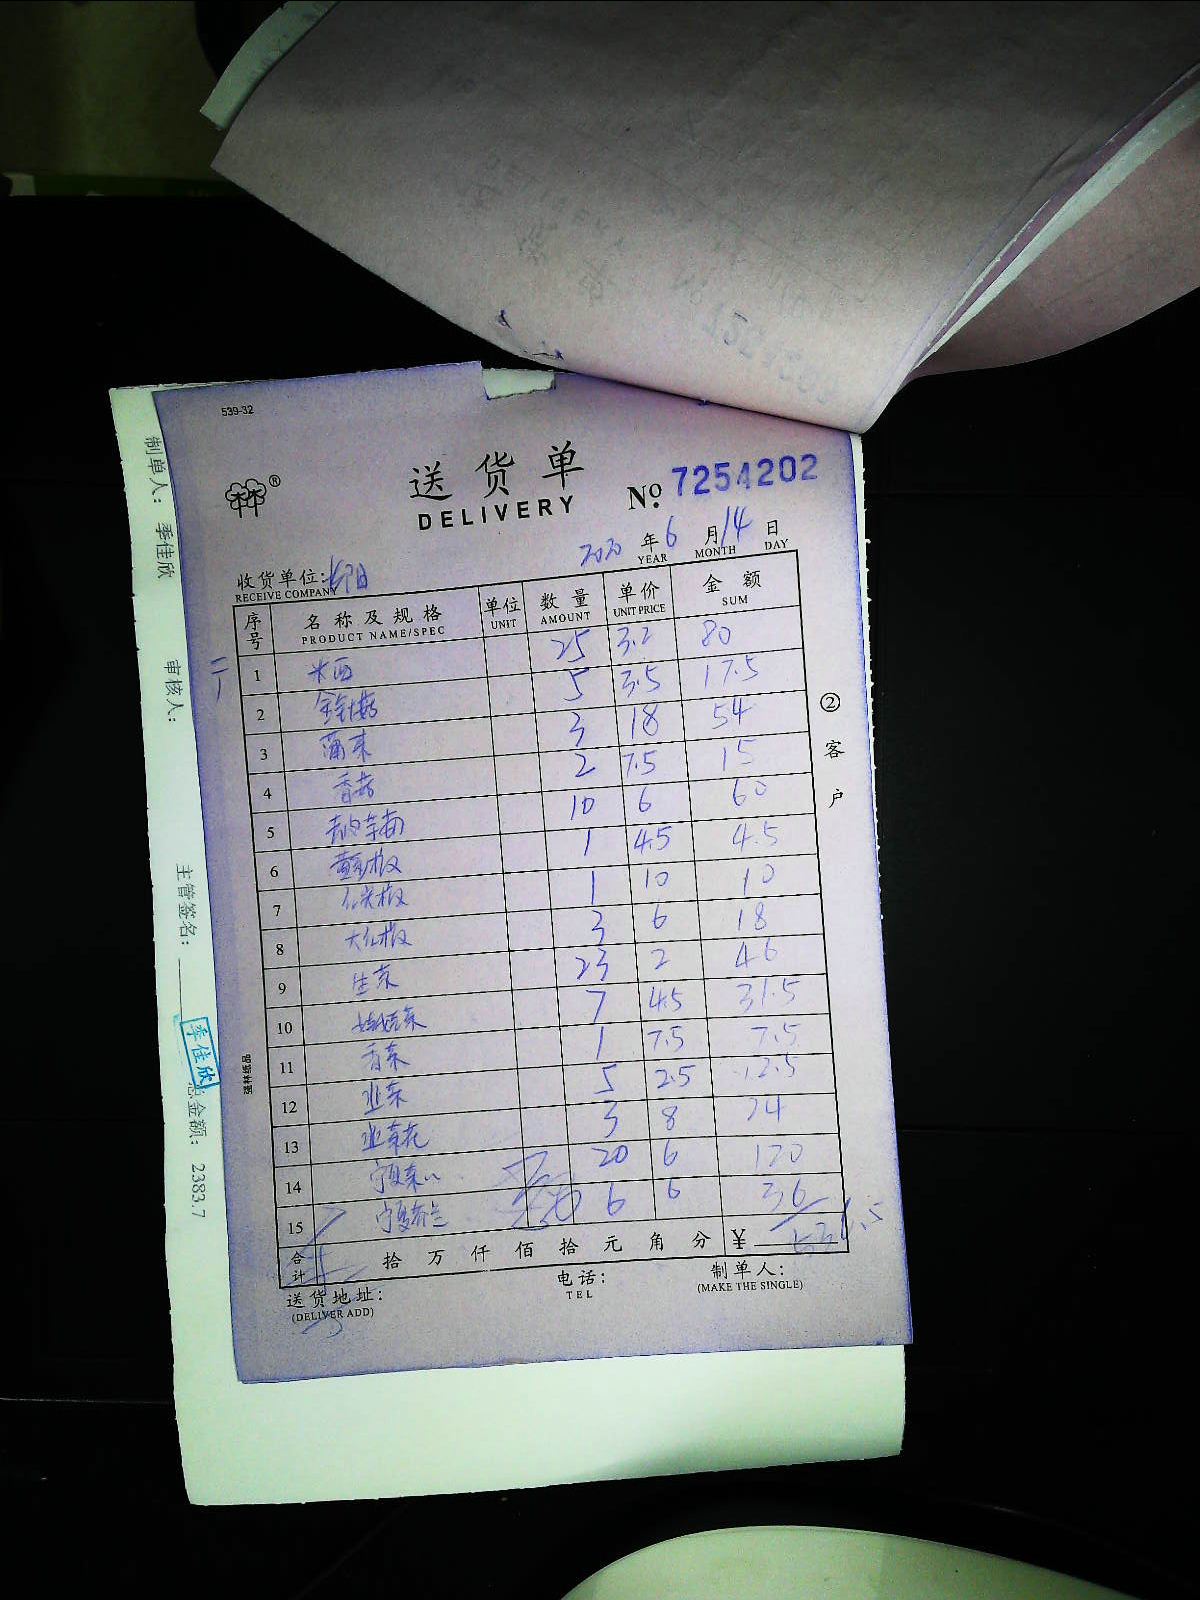 539-32
送货单
DELIVERY
№ 7254202
2020年6月14日
YEAR MONTH DAY
收货单位:
RECEIVE COMPANY
序号 名称及规格 单位 数量 单价 金额
PRODUCT NAME/SPEC UNIT AMOUNT UNIT PRICE SUM
1 米西 25 3.2 80
2 金针菇 5 3.5 17.5
3 蒲菜 3 18 54
4 香菇 2 7.5 15
5 10 6 60
6 1 4.5 4.5
7 1 10 10
8 大红椒 3 6 18
9 生菜 23 2 46
10 娃娃菜 7 4.5 31.5
11 香菜 1 7.5 7.5
12 韭菜 5 2.5 12.5
13 韭菜花 3 8 24
14 宁夏菜心 20 6 120
15 宁夏芥兰 6 6 36
合计 拾万仟佰拾元角分 ¥
送货地址:
(DELIVER ADD)
电话:
TEL
制单人:
(MAKE THE SINGLE)
②客户
强林纸品
制单人: 季佳欣
审核人:
主管签名:
季佳欣
总金额: 2383.7